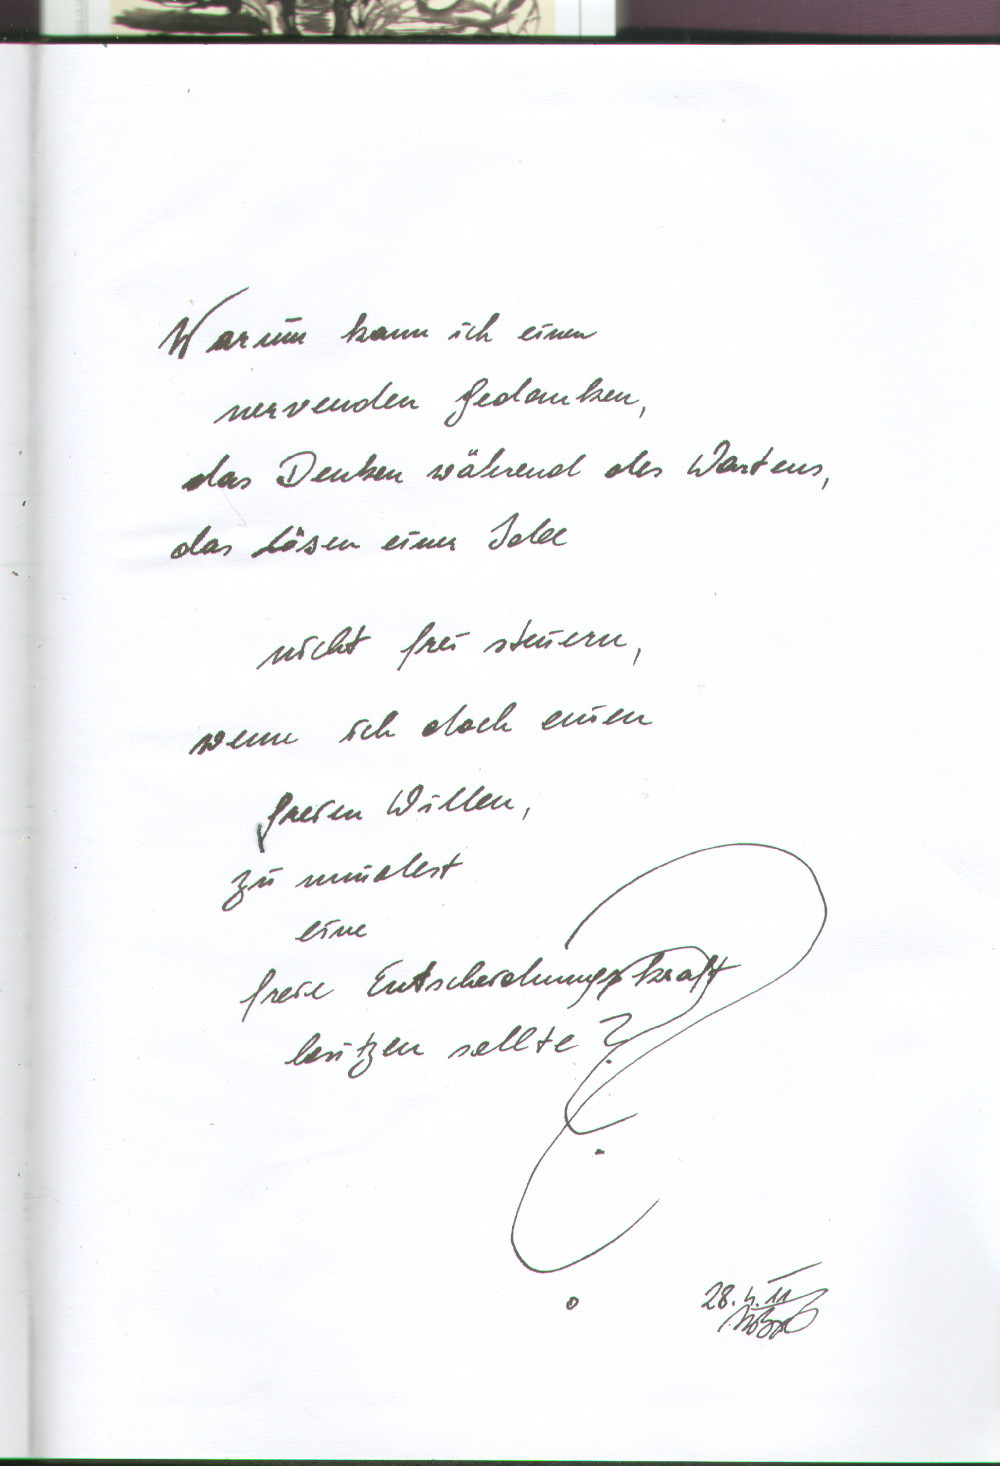 Warum kann ich einen
nervenden Gedanken,
das Denken während des Wartens,
das Lösen einer Idee
nicht frei steuern,
wenn ich doch einen
freien Willen,
zu mindest
eine
freie Entscheidungskraft
besitzen sollte ?
28.4.11